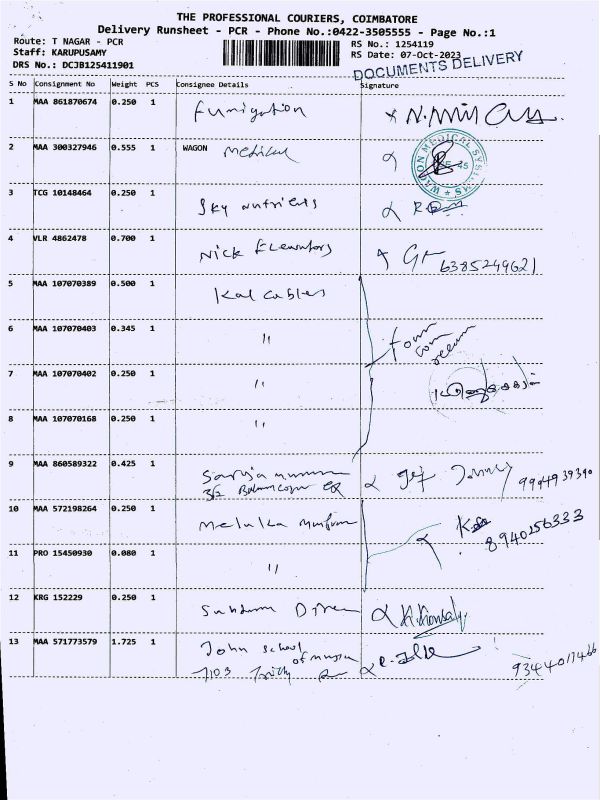 THE PROFESSIONAL COURIERS, COIMBATORE
Delivery Runsheet - PCR - Phone No.:0422-3505555 - Page No.:1
Route: T NAGAR - PCR
RS No.: 1254119
Staff: KARUPUSAMY
RS Date: 07-Oct-2023
DRS No.: DCJB125411901
DOCUMENTS DELIVERY
S No Consignment No Weight PCS Consignee Details Signature
1 MAA 861870674 0.250 1 Fumigation
2 MAA 300327946 0.555 1 WAGON Medical
WAGON MEDICAL SYSTEMS
3 TCG 10148464 0.250 1 Sky nutrients
4 VLR 4862478 0.700 1 Nick Elevators
6385249621
5 MAA 107070389 0.500 1 Kal Cables
6 MAA 107070403 0.345 1 "
Four
con
7 MAA 107070402 0.250 1 "
8 MAA 107070168 0.250 1 "
9 MAA 860589322 0.425 1
3/2
9944939390
10 MAA 572198264 0.250 1 Meluka
8940156333
11 PRO 15450930 0.080 1 "
12 KRG 152229 0.250 1
13 MAA 571773579 1.725 1 John School
of
1103 Trichy
9344017466